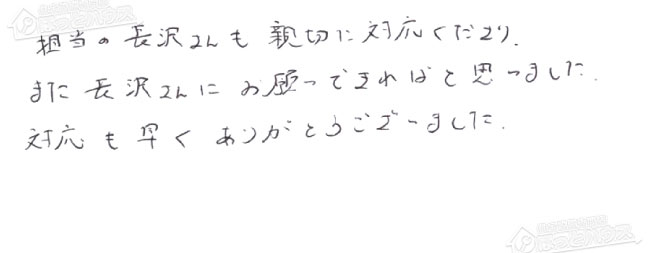 担当の長沢さんも親切に対応くださり.
また長沢さんにお願いできればと思いました.
対応も早くありがとうございました.